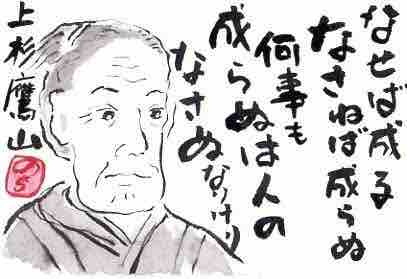 なせば成る
なさねば成らぬ
何事も
成らぬは人の
なさぬなりけり
上杉鷹山